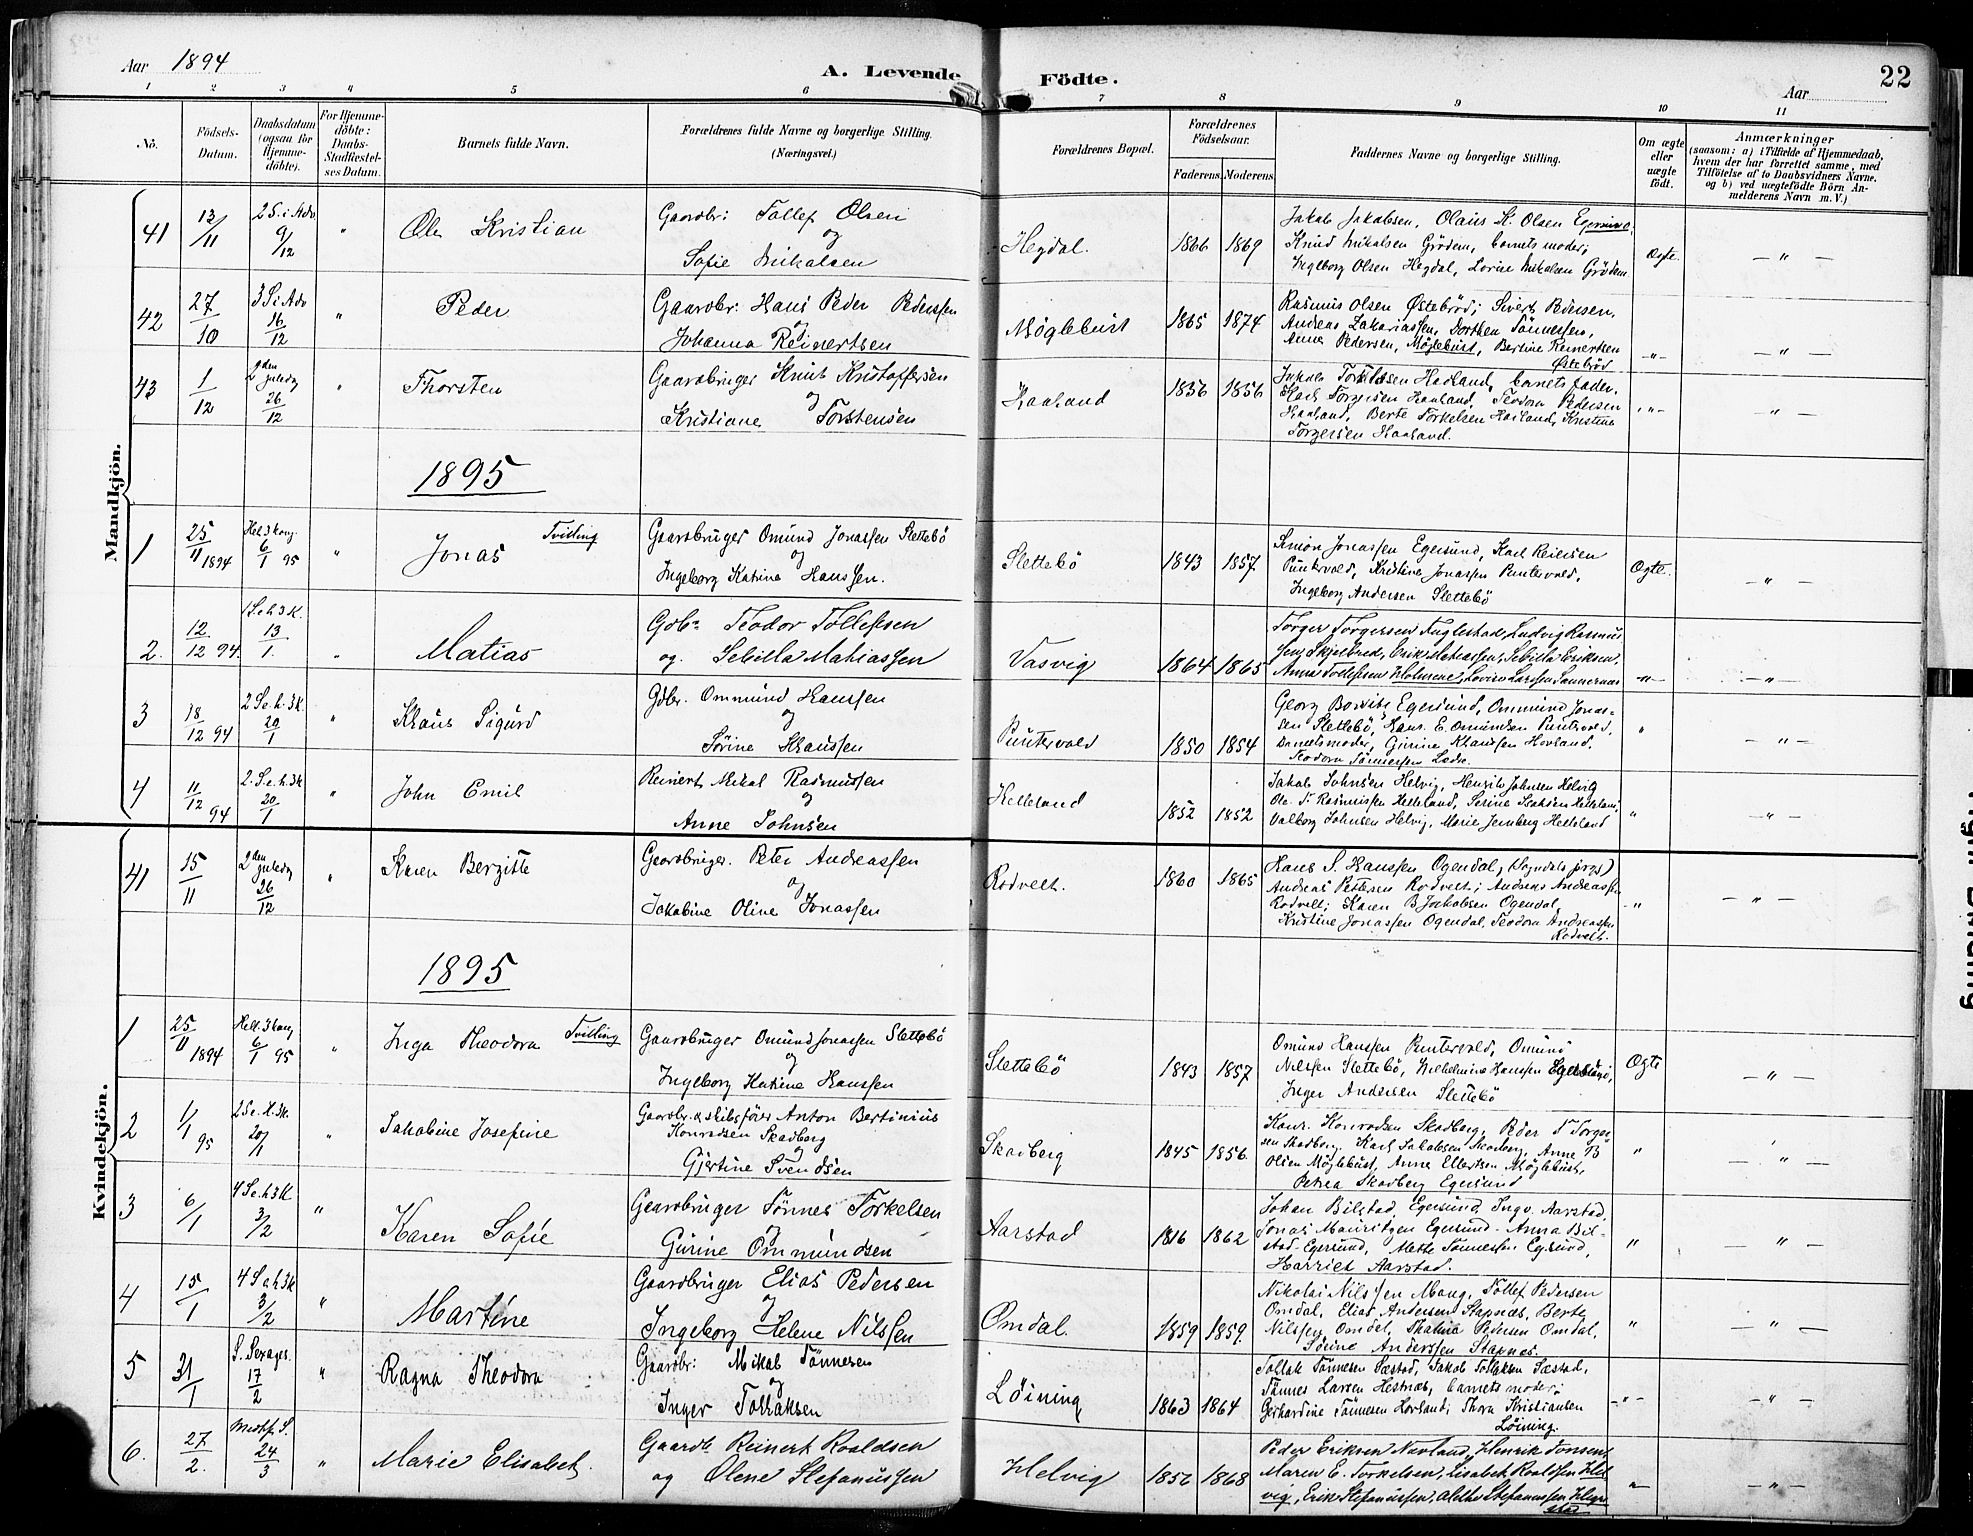 Aar 1894
A. Levende Födte.
22
Aar
1 2 3 4 5 6 7 8 9 10 11
No.
Födsels-Datum.
Daabsdatum (ogsaa for Hjemme-döbte).
For Hjemme-döbte: Daabs-Stadfæstel-ses Datum.
Barnets fulde Navn.
Forældrenes fulde Navne og borgerlige Stilling. (Næringsvei.)
Forældrenes Bopæl.
Forældrenes Födselsaar.
Faderens. Moderens.
Faddernes Navne og borgerlige Stilling.
Om ægte eller uægte födt.
Anmærkninger
(saasom: a) i Tilfælde af Hjemmedaab,
hvem der har forrettet samme, med
Tilföielse af to Daabsvidners Navne.
og b) ved uægtefödte Börn An-
melderens Navn m. V.)
Mandkjön.
41 13/11 2 S. i Adv 9/12 " Ole Kristian
Gaardbr: Tollef Olsen
og
Sofie Mikalsen
Hegdal. 1866 1869
Jakob Jakobsen, Olaus K. Olsen Egersund.
Knud Mikalsen Grödem, barnets moder;
Ingeborg Olsen Hegdal, Lovine Mikalsen Grödem
Ægte. — " —
42 27/10 3 S. i Adv 16/12 " Peder
Gaardbr: Hans Peder Pederssen
og
Johanna Reinertsen
Möglebust 1865 1874
Rasmus Olsen Østebröd; Sivert Pedersen,
Andreas Zakariassen, Dorthea Tönnessen,
Anne Pedersen, Möglebust, Bertine Reinertsen
Østebröd
-"- — " —
43 1/12 2den juledag 26/12 " Thorsten
Gaardbruger Knut Kristoffersen
og
Kristiane Torstensen
Haaland 1856 1856
Jakob Torkildsen Haaland, barnets fader,
Karl Torgersen Haaland, Teodora Pedersen
Haaland, Berte Torkelsen Haaland, Kristina
Torgersen Haaland.
-"- " —
1895
1 25/11 1894 Hel. 3 kong. 6/1 95 " Jonas Tvilling
Gaardbruger Omund Jonassen Slettebö
og
Ingeborg Katrine Hanssen.
Slettebö 1843 1857
Simon Jonassen Egersund, Karl Reiersen
Puntervold, Kristine Jonassen Puntervold,
Ingeborg Andersen Slettebö
Ægte. — " —
2. 12/12 94. 1 S. e. h. 3 K. 13/1. " Matias
Gdbr Teodor Tollefsen
og Sebilla Matiassen
Vasvig 1864 1865
Torger Torgersen Fuglestad, Ludvig Rasmus
sen Skjelbred, Erik Matiassen, Sebilla Eriksen,
Anna Tollefsen Holmene, Lovise Larssen Sannernæs
-"- — " —
3 18/12 94 2 S. e. h. 3 K. 20/1 " Klaus Sigurd
Gdbr. Ommund Hanssen
og
Sörine Klaussen
Puntervold 1850 1854
Georg Egersund, Ommund Jonas-
sen Slettebö, Hans E. Omundsen Puntervold,
Barnets moder, Gurine Klaussen Hovland,
Teodora Tönnessen Lade.
" — " —
4 11/12 94 2. S. e. h. 3 K 20/1 " John Emil
Reinert Mikal Rasmussen
og
Anne Johnsen
Helleland 1852 1852
Jakob Johnsen Helvig, Henrik Johnsen Helvig
Ole T. Rasmussen Helleland, Serine Isaksen Helleland,
Valborg Johnsen Helvig, Marie Jernberg Helleland
" — " —
Kvindekjön.
41 15/11 2den juledag 26/12 " Karen Bergitte
Gaardbruger. Peter Andreassen
og
Jakobine Oline Jonassen
Rodvelt. 1860 1865
Hans S. Hanssen Ogendal, (Sogndals prgj)
Andreas Pettersen Rodvelt; Andreas Andreassen
Rodvelt; Karen B. Jakobsen Ogendal,
Kristine Jonassen Ogendal, Teodora Andreassen
Rodvelt.
-" — " —
1895
1 25/11 1894 Hell. 3 kong 6/1 95 " Inga Theodora Tvilling
Gaardbruger Omund Jonassen Slettebö
og
Ingeborg Katrine Hanssen
Slettebö 1843 1857
Omund Hanssen Puntervold, Omund
Nilssen Slettebö, Vilhelmine Hanssen Egersund,
Inger Andersen Slettebö
Ægte — " —
2 1/1 95 2 S e. H. 3 K. 20/1 " Jakobine Josefine
Gaardbr. & skibsförer Anton Bertinius
Konradsen Skadberg
og
Gjertine Svendsen
Skadberg 1845 1856
Konr. Konradsen Skadberg, Peder T. Torger-
sen Skadberg, Karl Jakobsen Skadberg, Anne B
Olsen Möglebust, Anne Ellertsen Möglebust,
Petrea Skadberg Egersund
" — " —
3 6/1 4 S e. h 3 K 3/2 " Karen Sofie
Gaardbruger Tönnes Torkelsen
og
Gurine Ommundsen
Aarstad 1816 1862
Johan Bilstad, Egersund, Ingv. Aarstad,
Jonas Mauritzen Egersund. Anna Bil-
stad Egersund, Mette Tönnessen Egersund,
Harriet Aarstad.
" — " —
4 15/1 4 S e h 3 K 3/2 " Martine
Gaardbruger Elias Pedersen
og
Ingeborg Helene Nilssen
Omdal. 1859 1859.
Nikolai Nilssen Mong, Tollef Pedersen
Omdal, Elias Andersen Stapnæs, Berte
Nilssen Omdal, Pedersen Omdal,
Sörine Anderssen Stapnæs.
" — " —
5 31/1 S. Sexages. 17/2 " Ragna Theodora
Gaardbr: Mikal Tönnesen
og
Inger Tollaksen
Löining 1863 1864
Tollak Tönnesen Sæstad, Jakob Tollaksen Sæstad,
Tönnes Larsen Hestnæs, barnets moder;
Gerhardine Tönnesen Hovland; Thora Kristiansen
Löining.
-"- — " —
6. 27/2. Midtf. S. 24/3 " Marie Elisabet.
Gaardb Reinert Roaldsen
og Olene Stefanussen
Helvig 1856 1868
Peder Eriksen Navland, Henrik Tonsen,
Maren E. Torkelsen, Lisabet Roaldsen Hel
vig, Erik Stefanussen, Alethe Stefanussen Hegre
stad
" — " —